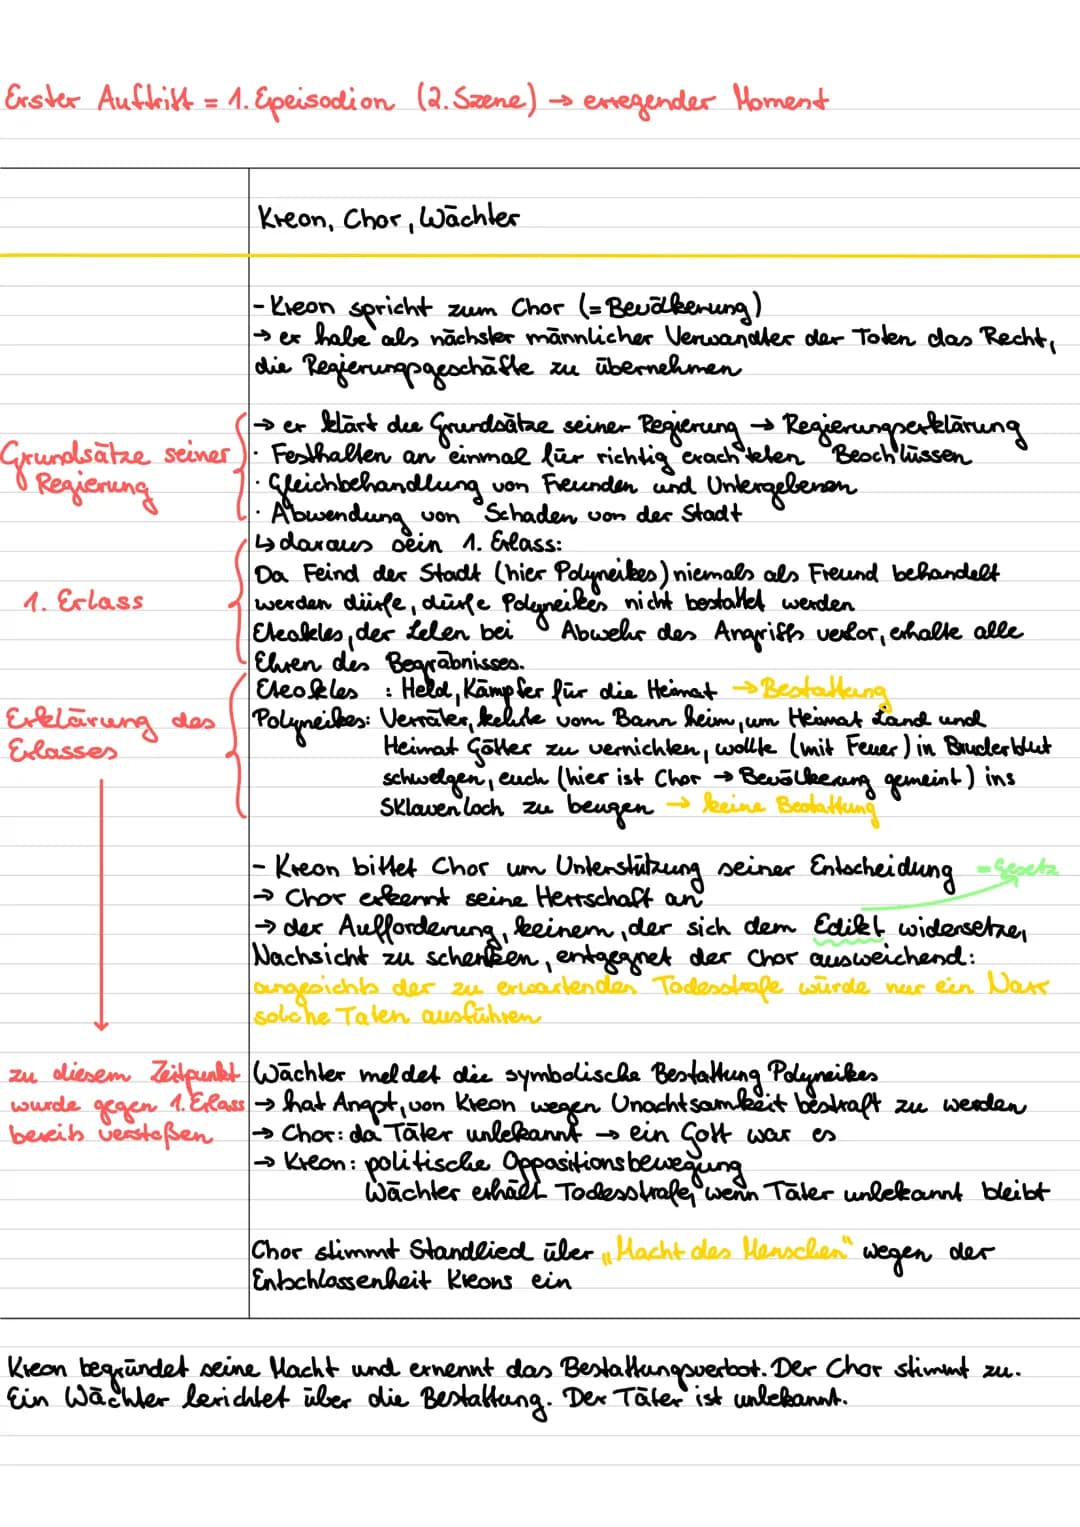 Erster Auftritt = 1. Epeisodion (2. Szene) → erregender Moment
Kreon, Chor, Wächter
- Kreon spricht zum Chor (= Bevölkerung)
→ er habe als nächster männlicher Verwandter der Toten das Recht,
die Regierungsgeschäfte zu übernehmen
Grundsätze seiner
Regierung
→ er klärt die Grundsätze seiner Regierung → Regierungserklärung
· Festhalten an einmal für richtig erachteten Beschlüssen
· Gleichbehandlung von Freunden und Untergebenen
· Abwendung von Schaden von der Stadt
↳ daraus sein 1. Erlass:
1. Erlass
Da Feind der Stadt (hier Polyneikes) niemals als Freund behandelt
werden dürfe, dürfe Polyneikes nicht bestattet werden
Eteokles, der Leben bei Abwehr des Angriffs verlor, erhalte alle
Ehren des Begräbnisses.
Erklärung des
Erlasses
Eteokles : Held, Kämpfer für die Heimat → Bestattung
Polyneikes: Verräter, kehrte vom Bann heim, um Heimat Land und
Heimat Götter zu vernichten, wollte (mit Feuer) in Bruderblut
schwelgen, euch (hier ist Chor → Bevölkerung gemeint) ins
Sklavenloch zu beugen → keine Bestattung
- Kreon bittet Chor um Unterstützung seiner Entscheidung = Gesetz
→ Chor erkennt seine Herrschaft an
→ der Aufforderung, keinem, der sich dem Edikt widersetze,
Nachsicht zu schenken, entgegnet der Chor ausweichend:
angesichts der zu erwartenden Todesstrafe würde nur ein Narr
solche Taten ausführen
zu diesem Zeitpunkt
wurde gegen 1. Erlass
bereits verstoßen
Wächter meldet die symbolische Bestattung Polyneikes
→ hat Angst, von Kreon wegen Unachtsamkeit bestraft zu werden
→ Chor: da Täter unbekannt → ein Gott war es
→ Kreon: politische Oppositionsbewegung
Wächter erhält Todesstrafe, wenn Täter unbekannt bleibt
Chor stimmt Standlied über „Macht des Menschen" wegen der
Entschlossenheit Kreons ein
Kreon begründet seine Macht und ernennt das Bestattungsverbot. Der Chor stimmt zu.
Ein Wächter berichtet über die Bestattung. Der Täter ist unbekannt.